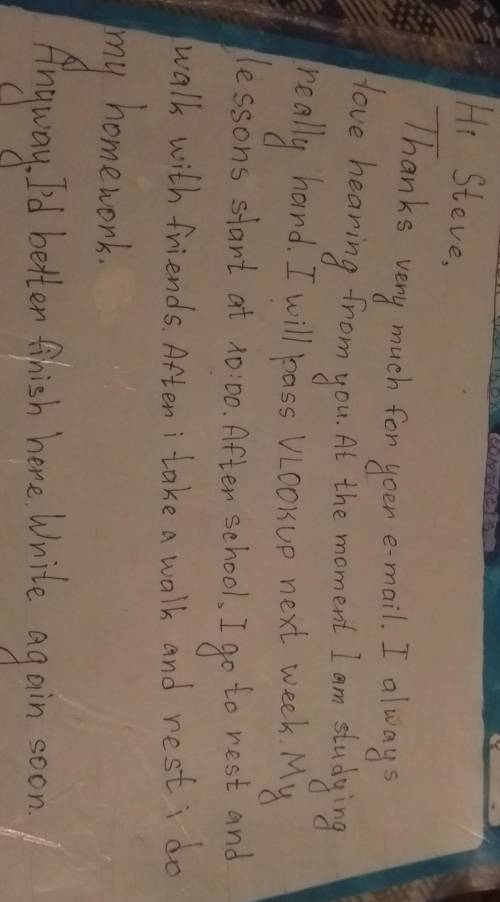 Hi Steve,
Thanks very much for yoer e-mail. I always
love hearing from you. At the moment I am studying
really hard. I will pass VLOOKUP next week. My
lessons start at 10:00. After school, I go to rest and
walk with friends. After i take a walk and rest i do
my homework.
Anyway, I'd better finish here. Write again soon.